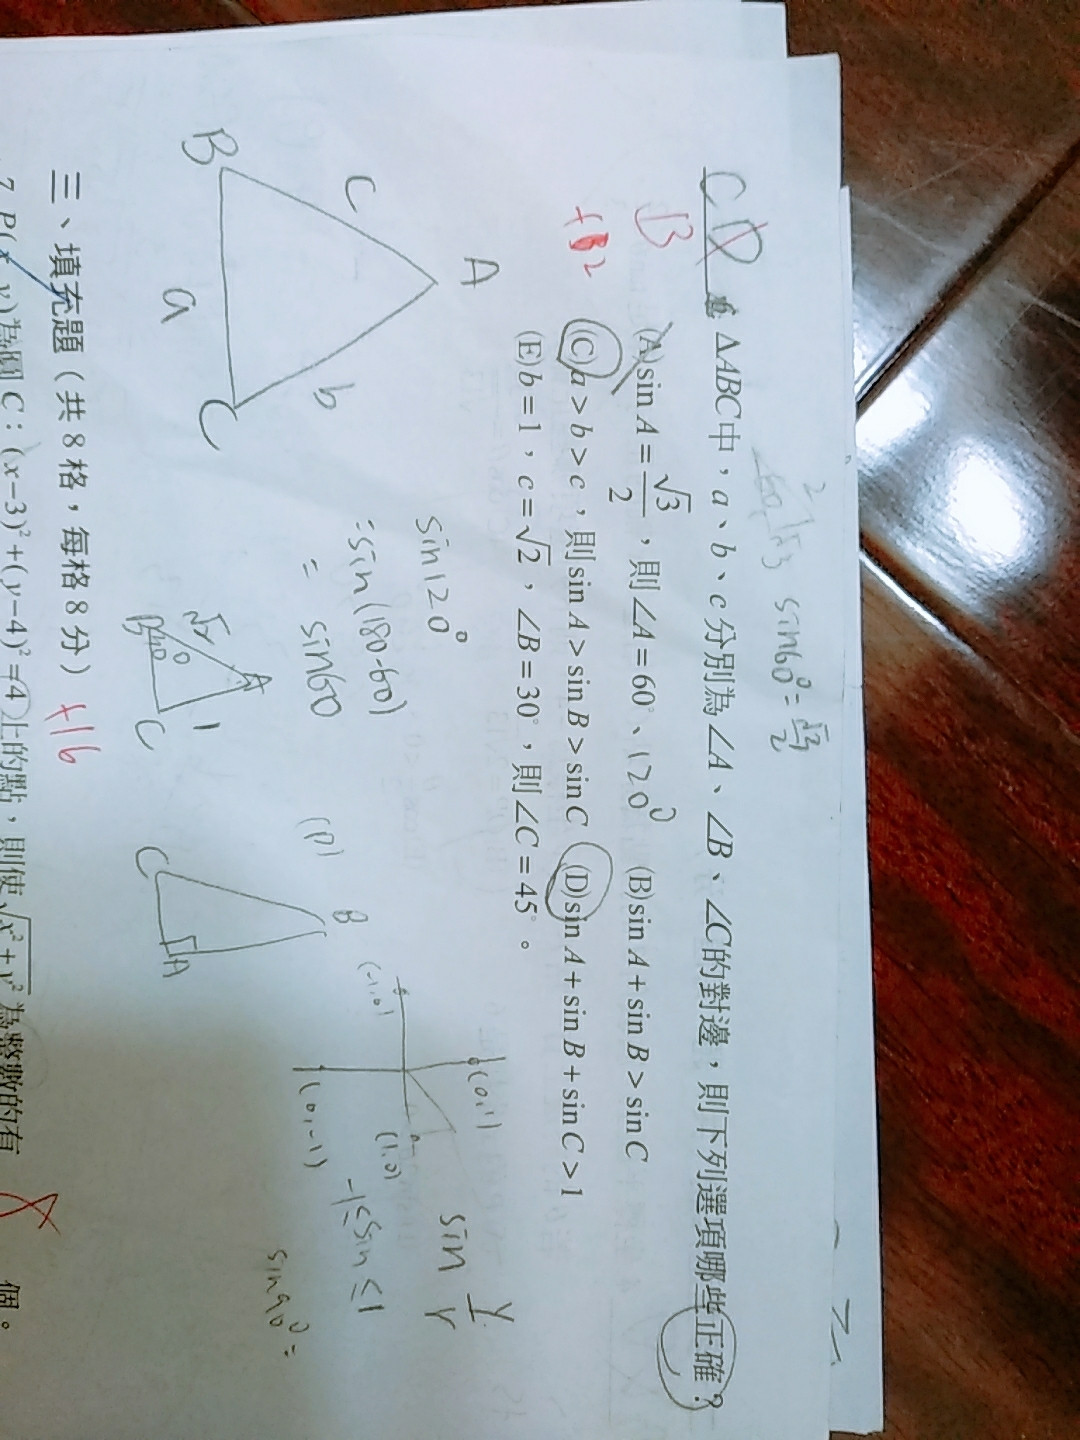 2
√3 sin60°=√3/2
CD 6. ΔABC中，a、b、c分別為∠A、∠B、∠C的對邊，則下列選項哪些正確？
B
+2
(A)sin A=√3/2，則∠A=60°、120° (B)sin A+sin B>sin C
(C)a>b>c，則sin A>sin B>sin C (D)sin A+sin B+sin C>1
(E)b=1，c=√2，∠B=30°，則∠C=45°。
A
c
b
B
a
C
sin120°
=sin(180-60)
= sin60
A
1
B
C
(D)
B
C
A
(0,1)
(-1,0)
(1,0)
(0,-1)
sin y/r
-1≤sin≤1
sin90°=
三、填充題（共8格，每格8分） +16
7. P(x,y)為圓C：(x-3)²+(y-4)²=4上的點，則使√x²+y²為整數的有 8 個。